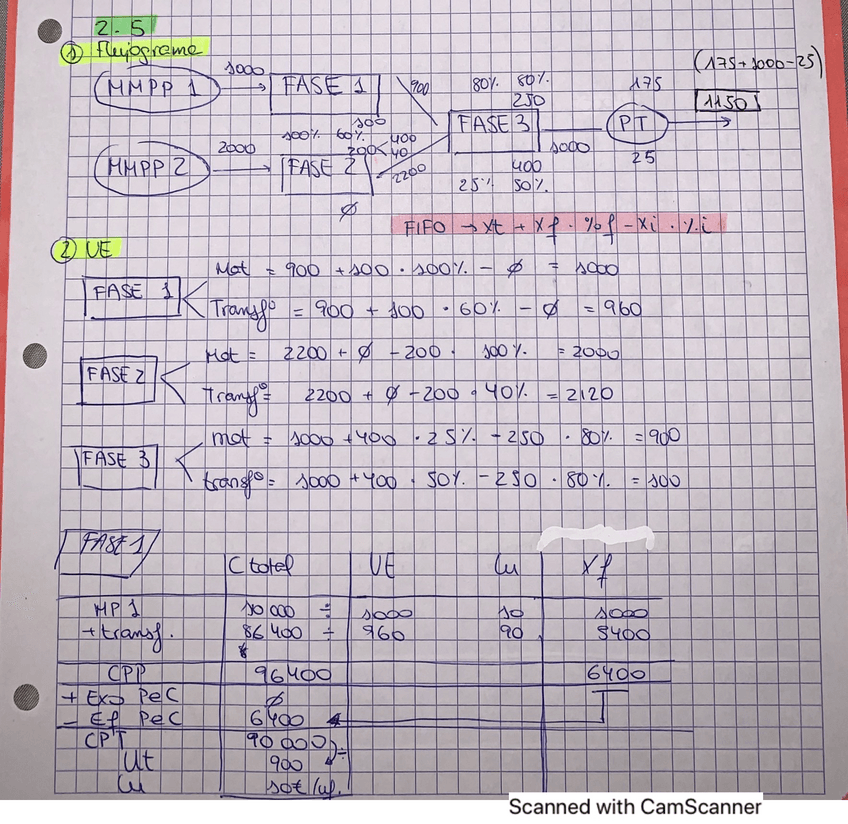 2.5
① Flujograma
(175+1000-25)
MMPP 1 1000 FASE 1 900 80% 80% 175
250 1150
100 FASE 3 PT
100% 60% 400
MMPP 2 2000 200< 40 1000
FASE 2 2200 400 25
25% 50%
∅
FIFO → Xt + Xf · %f - Xi · %i
② UE
FASE 1
Mat = 900 + 100 · 100% - ∅ = 1000
Transfº = 900 + 100 · 60% - ∅ = 960
FASE 2
Mat = 2200 + ∅ - 200 · 100% = 2000
Transfº = 2200 + ∅ - 200 · 40% = 2120
FASE 3
mat = 1000 + 400 · 25% - 250 · 80% = 900
transfº = 1000 + 400 · 50% - 250 · 80% = 100
FASE 1
C total UE Cu Xf
MP 1 10 000 ÷ 1000 10 1000
+ transf. 86 400 ÷ 960 90 5400
CPP 96400 6400
+ Exs PeC ∅
- Ef PeC 6400
CPT 90 000
Ut 900
Cu 10€/uf.
Scanned with CamScanner